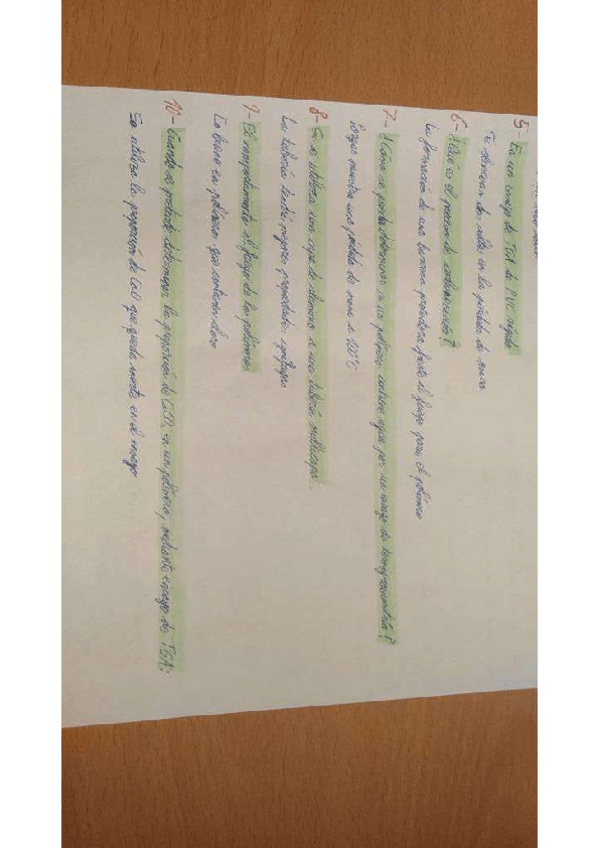 5- En un ensayo de TGA de PVC rígido
Se observan dos saltos en la pérdida de masa
6- ¿Qué es el proceso de carbonización?
La formación de una barrera protectora frente al fuego para el polímero
7- ¿Cómo se puede determinar si un polímero contiene agua por un ensayo de termogravimetría?
Porque muestra una pérdida de masa a 100°C
8- Si se utiliza una capa de aluminio a una tubería multicapa:
La tubería tendrá mejores propiedades ignífugas
9- El comportamiento al fuego de los polímeros
Es bueno en polímeros que contienen cloro
10- Cuando se pretende determinar la proporción de CaCO3 en un polímero, mediante ensayo de TGA:
Se utiliza la proporción de CaO que queda exenta en el ensayo